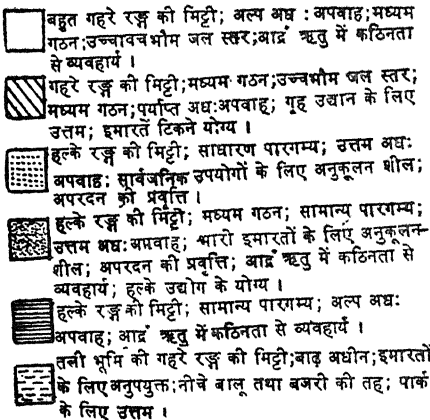 बहुत गहरे रङ्ग की मिट्टी; अल्प अध : अपवाह;मध्यम
गठन;उच्चावचभौम जल स्तर;आर्द्र ऋतु में कठिनता
से व्यवहार्य ।
गहरे रङ्ग की मिट्टी;मध्यम गठन;उच्चभौम जल स्तर;
मध्यम गठन;पर्याप्त अध:अपवाह; गृह उद्यान के लिए
उत्तम; इमारतें टिकने योग्य ।
हल्के रङ्ग की मिट्टी; साधारण पारगम्य; उत्तम अध:
अपवाह; सार्वजनिक उपयोगों के लिए अनुकूलन शील;
अपरदन की प्रवृत्ति ।
हल्के रङ्ग की मिट्टी; मध्यम गठन; सामान्य पारगम्य;
उत्तम अध: अपवाह; भारी इमारतों के लिए अनुकूलन-
शील; अपरदन की प्रवृत्ति; आर्द्र ऋतु में कठिनता से
व्यवहार्य; हल्के उद्योग के योग्य ।
हल्के रङ्ग की मिट्टी; सामान्य पारगम्य; अल्प अध:
अपवाह; आर्द्र ऋतु में कठिनता से व्यवहार्य ।
तली भूमि की गहरे रङ्ग की मिट्टी;बाढ़ अधीन;इमारतों
के लिए अनुपयुक्त;नीचे बालू तथा बजरी की तह; पार्क
के लिए उत्तम ।